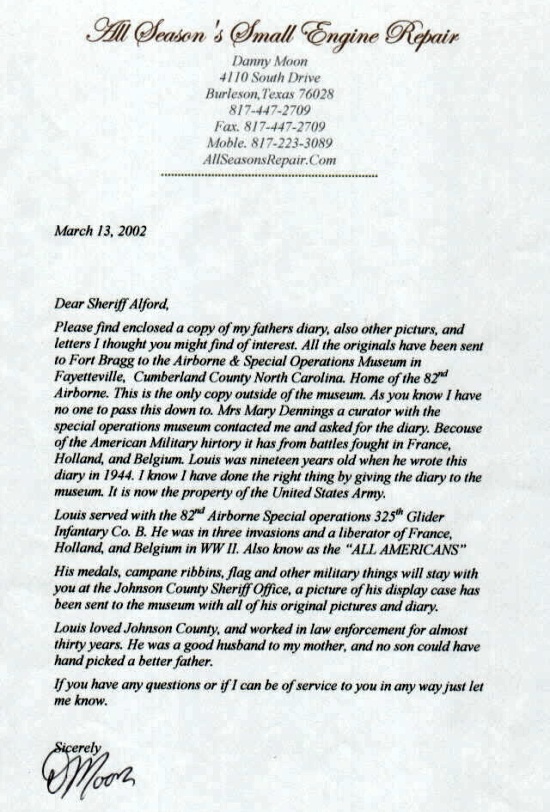 All Season's Small Engine Repair
Danny Moon
4110 South Drive
Burleson,Texas 76028
817-447-2709
Fax. 817-447-2709
Moble. 817-223-3089
AllSeasonsRepair.Com
March 13, 2002
Dear Sheriff Alford,
Please find enclosed a copy of my fathers diary, also other picturs, and
letters I thought you might find of interest. All the originals have been sent
to Fort Bragg to the Airborne & Special Operations Museum in
Fayetteville, Cumberland County North Carolina. Home of the 82nd
Airborne. This is the only copy outside of the museum. As you know I have
no one to pass this down to. Mrs Mary Dennings a curator with the
special operations museum contacted me and asked for the diary. Becouse
of the American Military hirtory it has from battles fought in France,
Holland, and Belgium. Louis was nineteen years old when he wrote this
diary in 1944. I know I have done the right thing by giving the diary to the
museum. It is now the property of the United States Army.
Louis served with the 82nd Airborne Special operations 325th Glider
Infantary Co. B. He was in three invasions and a liberator of France,
Holland, and Belgium in WW II. Also know as the "ALL AMERICANS"
His medals, campane ribbins, flag and other military things will stay with
you at the Johnson County Sheriff Office, a picture of his display case has
been sent to the museum with all of his original pictures and diary.
Louis loved Johnson County, and worked in law enforcement for almost
thirty years. He was a good husband to my mother, and no son could have
hand picked a better father.
If you have any questions or if I can be of service to you in any way just let
me know.
Sicerely
D Moon